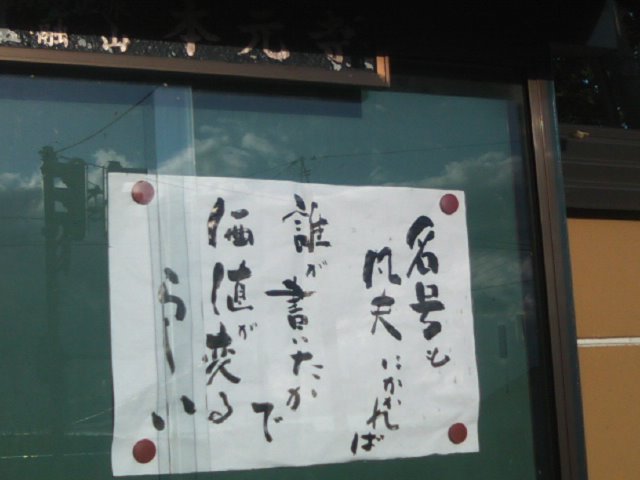 本元寺
名号も
凡夫にかかれば
誰が書いたかで
価値が変る
らしい